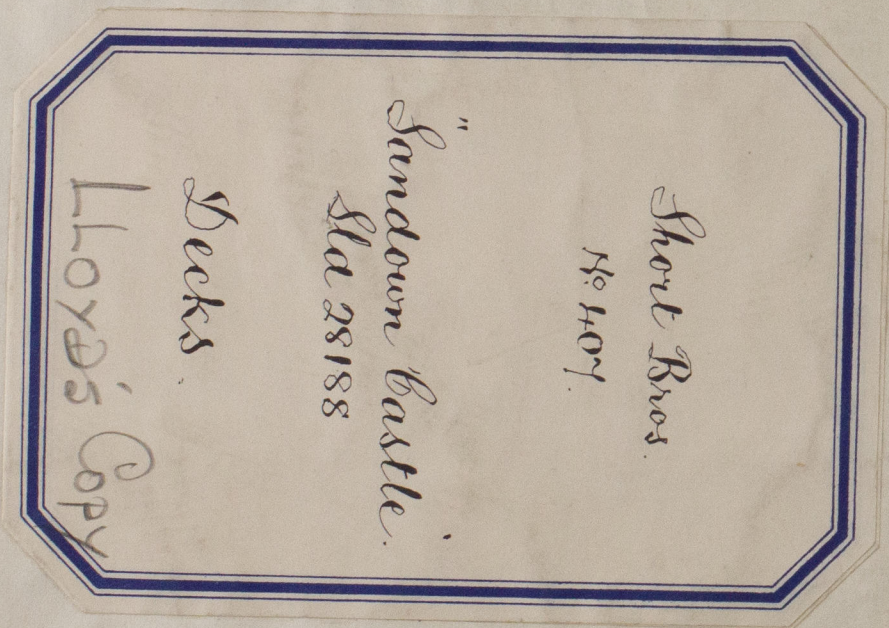 Short Bros.
No. 407.
"Sandown Castle".
Sld 28188
Decks.
LLOYD'S COPY